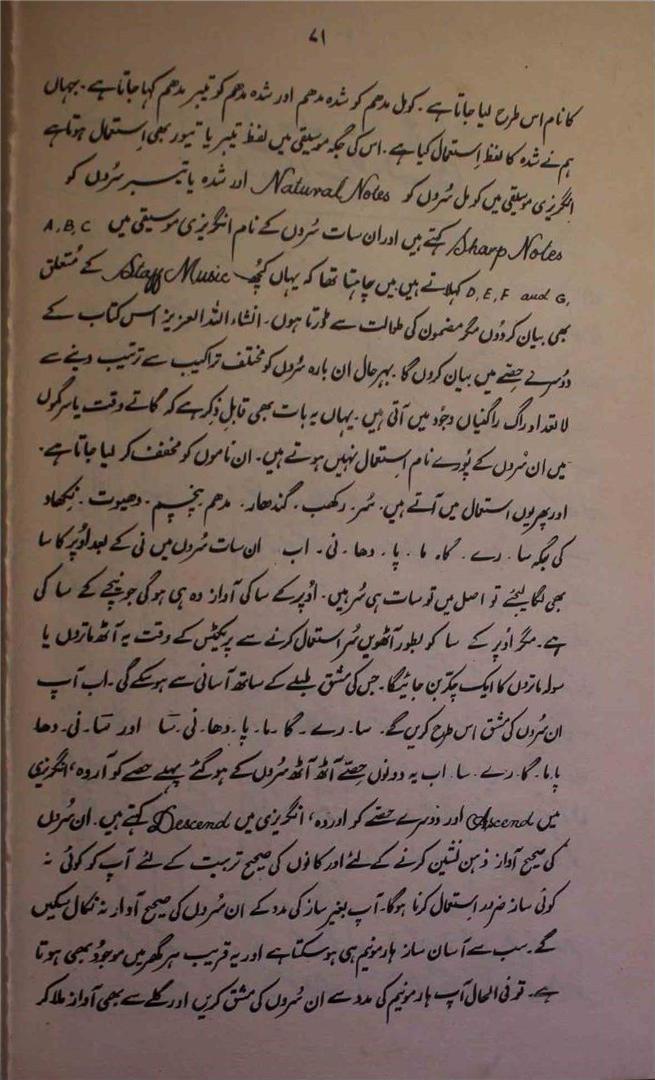 ۷۱
کا نام اس طرح لیا جاتا ہے۔ کومل مدھم کو شدہ مدھم اور شدہ مدھم کو تیبر مدھم کہا جاتا ہے۔ یہاں
ہم نے شدہ کا لفظ اِستعمال کیا ہے۔ اس کی جگہ موسیقی میں لفظ تیبر یا تیور بھی اِستعمال ہوتا ہے
انگریزی موسیقی میں کومل سُروں کو Natural Notes اور شدہ یا تیبر سُروں کو
Sharp Notes کہتے ہیں اور ان سات سُروں کے نام انگریزی موسیقی میں A, B, C
D, E, F and G, کہلاتے ہیں میں چاہتا تھا کہ یہاں کچھ Staff Music کے مُتعلق
بھی بیان کر دوں مگر مضمون کی طوالت سے ڈرتا ہوں۔ انشاء اللہ العزیز اس کتاب کے
دوسرے حِصّے میں بیان کروں گا بہرحال ان بارہ سُروں کو مختلف تراکیب سے ترتیب دینے سے
لاتعداد راگ راگنیاں وجُود میں آتی ہیں۔ یہاں یہ بات بھی قابلِ ذِکر ہے کہ گاتے وقت یا سرگموں
میں ان سُروں کے پُورے نام اِستعمال نہیں ہوتے ہیں۔ ان ناموں کو مخفف کر لیا جاتا ہے۔
اور پھر یوں استعمال میں آتے ہیں۔ سُر۔ رکھب۔ گندھار۔ مدھم۔ پنچم۔ دھیوت۔ نکھاد
کی جگہ سا۔ رے۔ گا۔ ما۔ پا۔ دھا۔ نی۔ اب ان سات سُروں میں نی کے بعد اُوپر کا سا
بھی لگا لیجئے تو اصل میں تو سات ہی سُر ہیں۔ اُوپر کے سا کی آواز وہ ہی ہو گی جو نیچے کے سا کی
ہے۔ مگر اُوپر کے سا کو بطور آٹھویں سُر استعمال کرنے سے پریکٹس کے وقت یہ آٹھ ماتروں یا
سولہ ماتروں کا ایک چکّر بن جائیگا۔ جس کی مشق طبلے کے ساتھ آسانی سے ہو سکے گی۔ اب آپ
ان سُروں کی مشق اس طرح کریں گے۔ سا۔ رے۔ گا۔ ما۔ پا۔ دھا۔ نی۔ سَا اور سَا۔ نی۔ دھا
پا۔ ما۔ گا۔ رے۔ سا۔ اب یہ دونوں حِصّے آٹھ آٹھ سُروں کے ہو گئے پہلے حصے کو آروہ، انگریزی
میں Ascend اور دُوسرے حصّے کو اوروہ، انگریزی میں Descend کہتے ہیں۔ ان سُروں
کی صحیح آواز ذہن نشین کرنے کے لئے اور کانوں کی صحیح تربیت کے لئے آپ کو کوئی نہ
کوئی ساز ضرور اِستعمال کرنا ہوگا۔ آپ بغیر ساز کی مدد کے ان سُروں کی صحیح آواز نہ نکال سکیں
گے۔ سب سے آسان ساز ہارمونیم ہی ہو سکتا ہے اور یہ قریب ہر گھر میں موجُود بھی ہوتا
ہے۔ تو فی الحال آپ ہارمونیم کی مدد سے ان سُروں کی مشق کریں اور گلے سے بھی آواز ملا کر